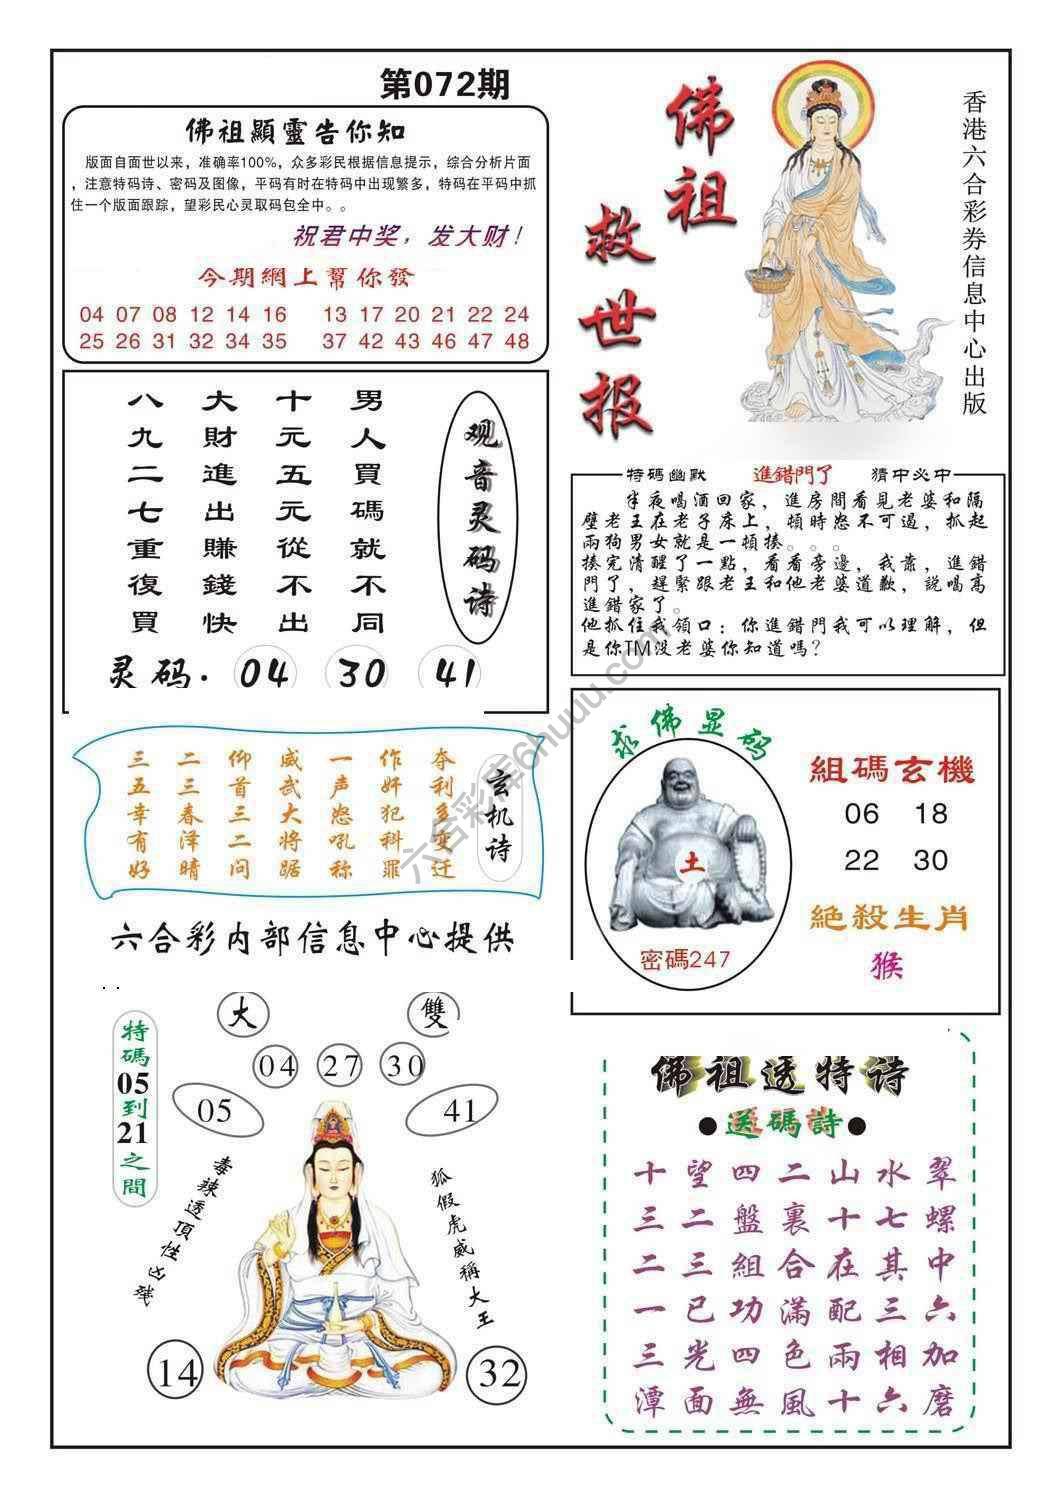 第072期
佛祖顯靈告你知
版面自面世以来，准确率100%，众多彩民根据信息提示，综合分析片面
，注意特码诗、密码及图像，平码有时在特码中出现繁多，特码在平码中抓
住一个版面跟踪，望彩民心灵取码包全中。。
祝君中奖，发大财！
今期網上幫你發
04 07 08 12 14 16 13 17 20 21 22 24
25 26 31 32 34 35 37 42 43 46 47 48
佛祖
救世报
香港六合彩券信息中心出版
观音灵码诗
男人買碼就不同
十元五元從不出
大財進出賺錢快
八九二七重復買
灵码. 04 30 41
特碼幽默 進錯門了 猜中必中
半夜喝酒回家，進房間看見老婆和隔
壁老王在老子床上，頓時怒不可遏，抓起
兩狗男女就是一頓揍。。。
揍完清醒了一點，看看旁邊，我靠，進錯
門了，趕緊跟老王和他老婆道歉，説喝高
進錯家了。
他抓住我领口：你進錯門我可以理解，但
是你TM没老婆你知道嗎？
玄机诗
夺利多变迁
作奸犯科罪
一声怒吼称
威武大将踞
仰首三二问
二三春泽晴
三五幸有好
六合彩内部信息中心提供
求佛显码
土
密碼247
組碼玄機
06 18
22 30
絕殺生肖
猴
特碼05到21之間
大 雙
04 27 30
05 41
毒辣透頂性凶残
狐假虎威稱大王
14 32
佛祖透特诗
●送碼詩●
十望四二山水翠
三二盤裏十七螺
二三組合在其中
一已功滿配三六
三光四色兩相加
潭面無風十六磨
六合彩库6huuu.com